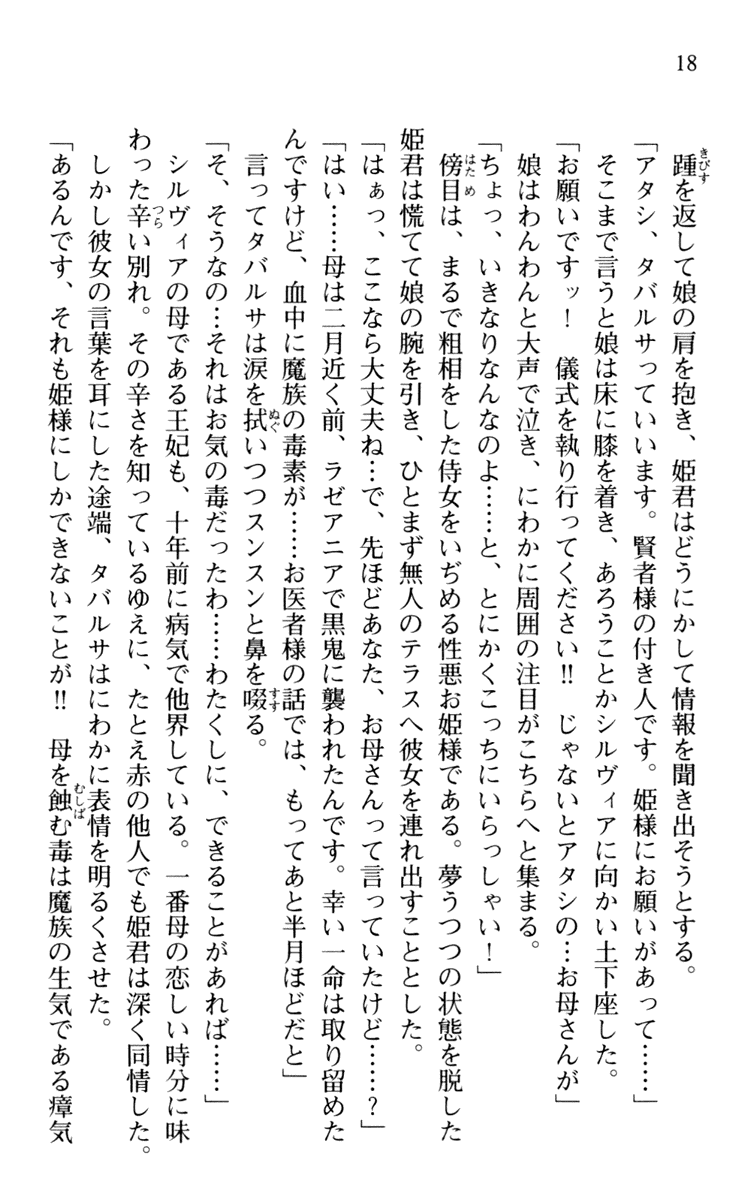 18
踵を返して娘の肩を抱き、姫君はどうにかして情報を聞き出そうとする。
「アタシ、タバルサっていいます。賢者様の付き人です。姫様にお願いがあって……」
そこまで言うと娘は床に膝を着き、あろうことかシルヴィアに向かい土下座した。
「お願いですッ！　儀式を執り行ってください‼　じゃないとアタシの…お母さんが」
娘はわんわんと大声で泣き、にわかに周囲の注目がこちらへと集まる。
「ちょっ、いきなりなんなのよ……と、とにかくこっちにいらっしゃい！」
傍目は、まるで粗相をした侍女をいぢめる性悪お姫様である。夢うつつの状態を脱した
姫君は慌てて娘の腕を引き、ひとまず無人のテラスへ彼女を連れ出すこととした。
「はぁっ、ここなら大丈夫ね…で、先ほどあなた、お母さんって言っていたけど……？」
「はい……母は二月近く前、ラゼアニアで黒鬼に襲われたんです。幸い一命は取り留めた
んですけど、血中に魔族の毒素が……お医者様の話では、もってあと半月ほどだと」
言ってタバルサは涙を拭いつつスンスンと鼻を啜る。
「そ、そうなの…それはお気の毒だったわ……わたくしに、できることがあれば……」
シルヴィアの母である王妃も、十年前に病気で他界している。一番母の恋しい時分に味
わった辛い別れ。その辛さを知っているゆえに、たとえ赤の他人でも姫君は深く同情した。
しかし彼女の言葉を耳にした途端、タバルサはにわかに表情を明るくさせた。
「あるんです、それも姫様にしかできないことが‼　母を蝕む毒は魔族の生気である瘴気